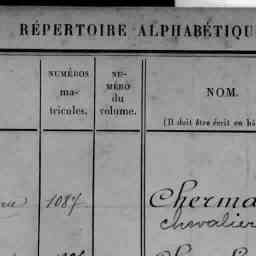 RÉPERTOIRE ALPHABÉTIQU
NUMÉROS
ma-
tricules.
NU-
MÉRO
du
volume.
NOM.
(Il doit être écrit en bâ
1087
Cherma
chevalier